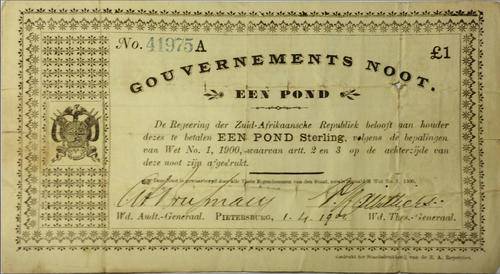 No. 41975 A £1
GOUVERNEMENTS NOOT.
EEN POND
De Regeering der Zuid-Afrikaansche Republiek belooft aan houder
dezes te betalen EEN POND Sterling, volgens de bepalingen
van Wet No. 1, 1900, waarvan artt. 2 en 3 op de achterzijde van
deze noot zijn afgedrukt.
Wet No. 1, 1900.
Wd. Audt.-Generaal. PIETERSBURG, 1.4.19 Wd. Thes.-Generaal.
Gedrukt ter Staatsdrukkerij van de Z. A. Republiek.